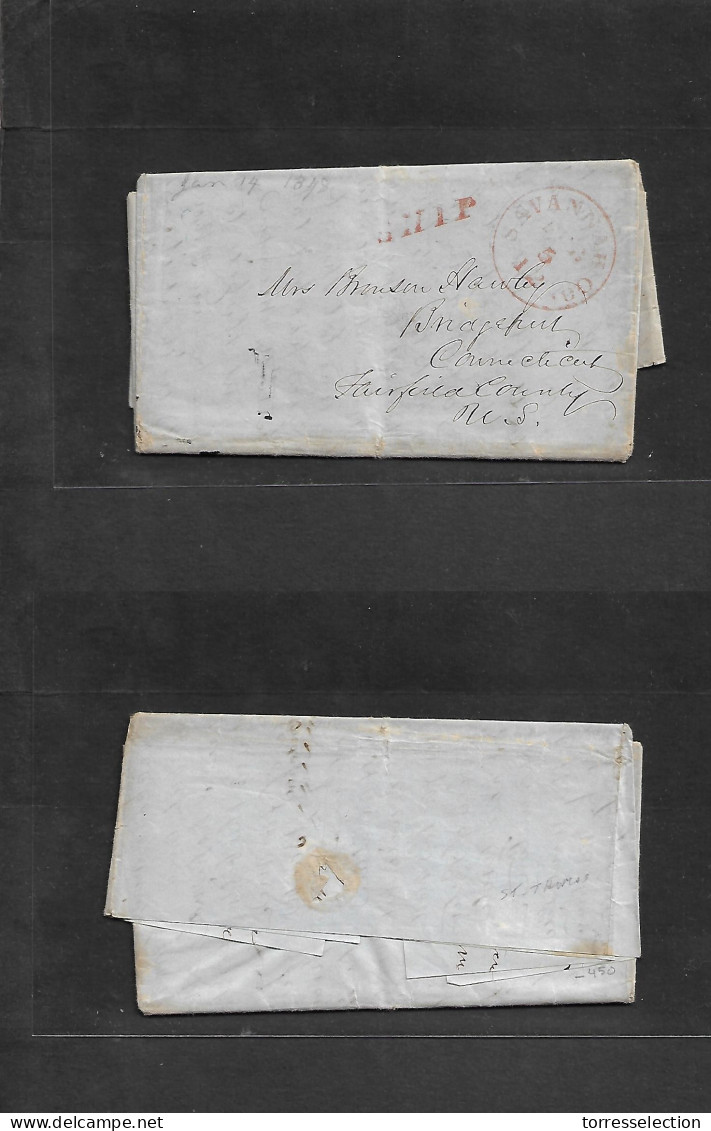 Jan 14 1848
SHIP
SAVANNAH
Ga.
5
12
Mrs Bronson Hawley
Bridgeport
Connecticut
Fairfield County
U.S.
St. Thomas
450
www.delcampe.net
torresselection